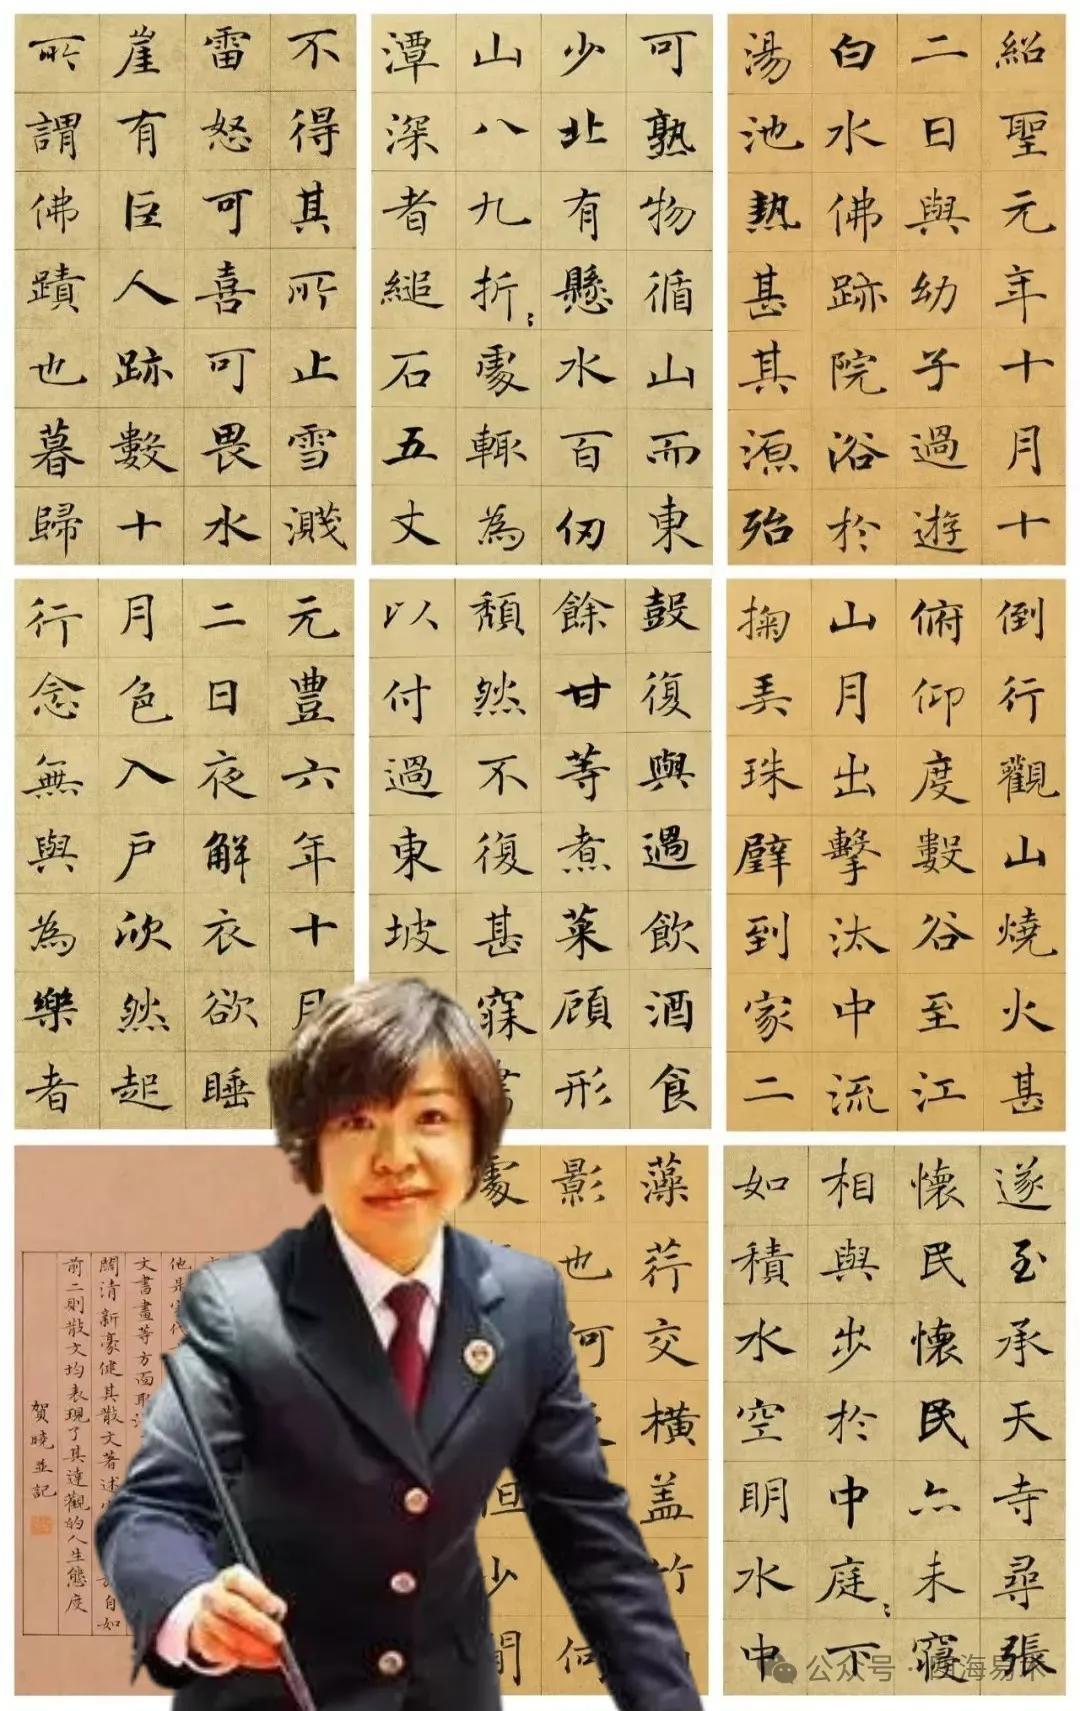 紹聖元年十月十
二日與幼子過遊
白水佛跡院浴於
湯池熱甚其源殆
可熟物循山而東
少北有懸水百仞
山八九折處輒為
潭深者縋石五丈
不得其所止雪濺
雷怒可喜可畏水
崖有巨人跡數十
所謂佛蹟也暮歸
倒行觀山燒火甚
俯仰度數谷至江
山月出擊汰中流
掬弄珠璧到家二
鼓復與過飲酒食
餘甘等煮菜顧形
頹然不復甚寐書
以付過東坡
元豐六年十月
二日夜解衣欲睡
月色入戶欣然起
行念無與為樂者
遂至承天寺尋張
懷民懷民亦未寢
相與步於中庭下
如積水空明水中
藻荇交橫蓋竹
影也何何
處但少閒
他是宋代
文書畫等方面取
闊清新豪健其散文著述自如
前二則散文均表現了其達觀的人生態度
賀曉並記
公众号·四海易